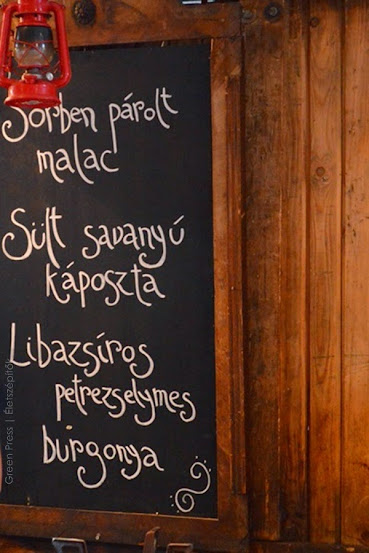 Sörben párolt
malac
Sült savanyú
káposzta
Libazsíros
petrezselymes
burgonya
Green Press | Életszépítők